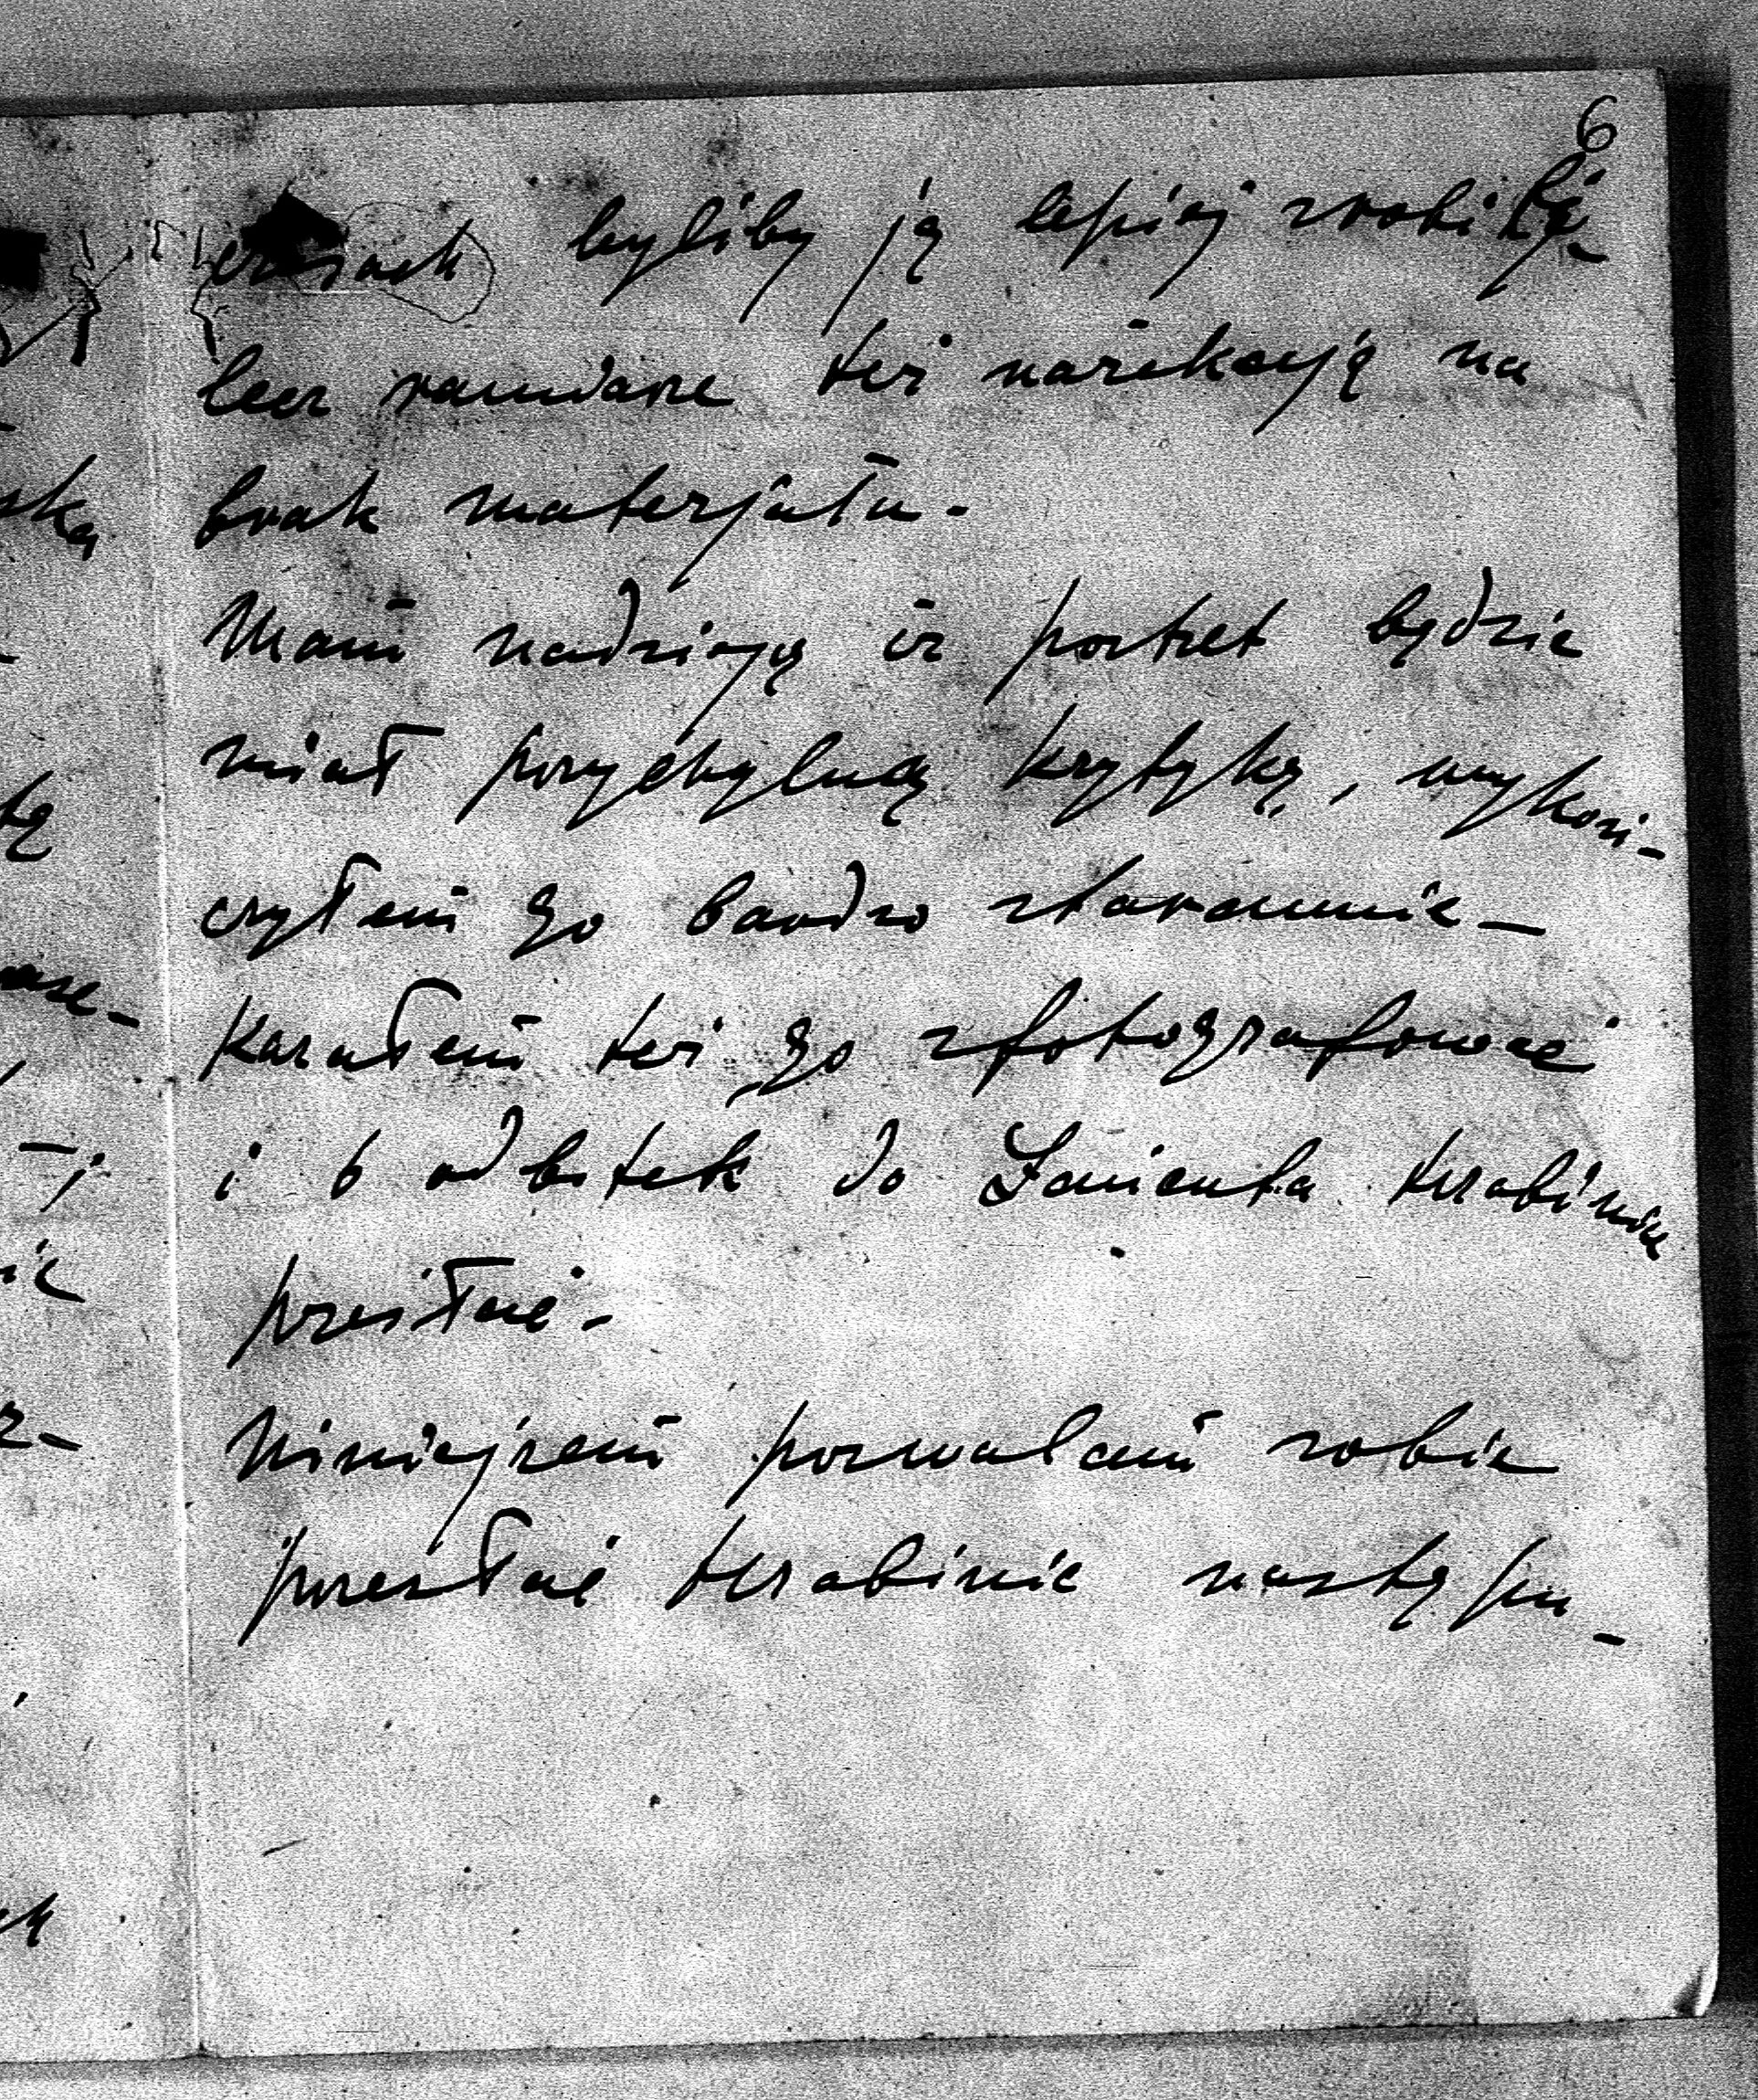 6
czasach byliby ją lepiej zrobili,
lecz ramiarze też narzekają na
brak materjału.
Mam nadzieję iż portret będzie
miał przychylną krytykę, wykoń-
czyłem go bardzo starannie –
Kazałem też go sfotografować
i 6 odbitek do Łańcuta Hrabinie
przesłać.
Niniejszem pozwalam sobie
przesłać Hrabinie nastepu-